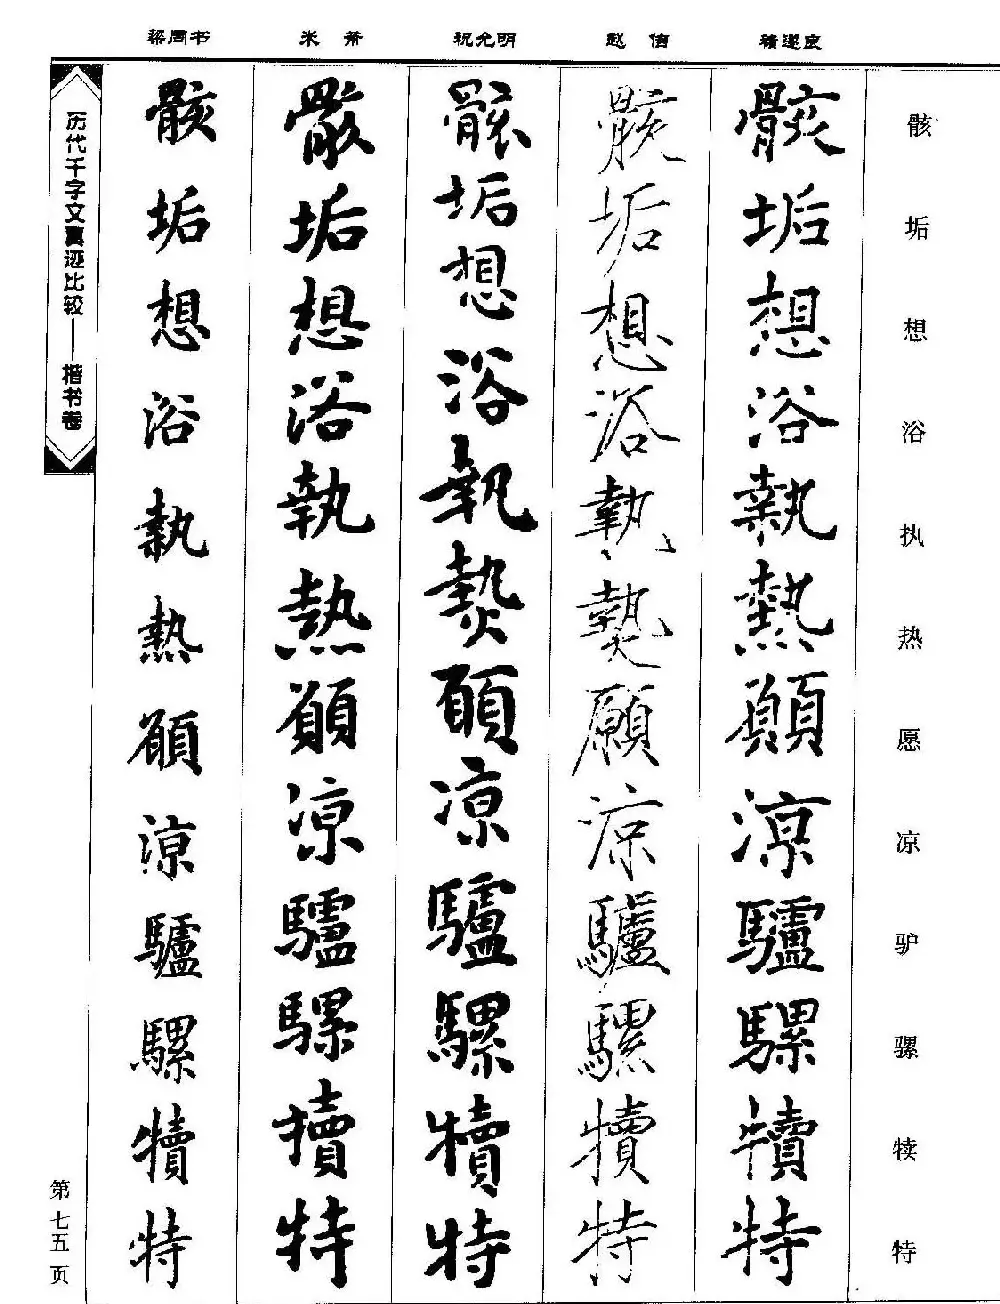 梁同书 米 芾 祝允明 赵 佶 褚遂良
骸垢想浴执热愿凉驴骡犊特
骸垢想浴執熱願涼驢騾犢特
骸垢想浴執熱願涼驢騾犢特
骸垢想浴執熱願涼驢騾犢特
骸垢想浴執熱願涼驢騾犢特
骸垢想浴執熱願涼驢騾犢特
历代千字文真迹比较——楷书卷
第七五页